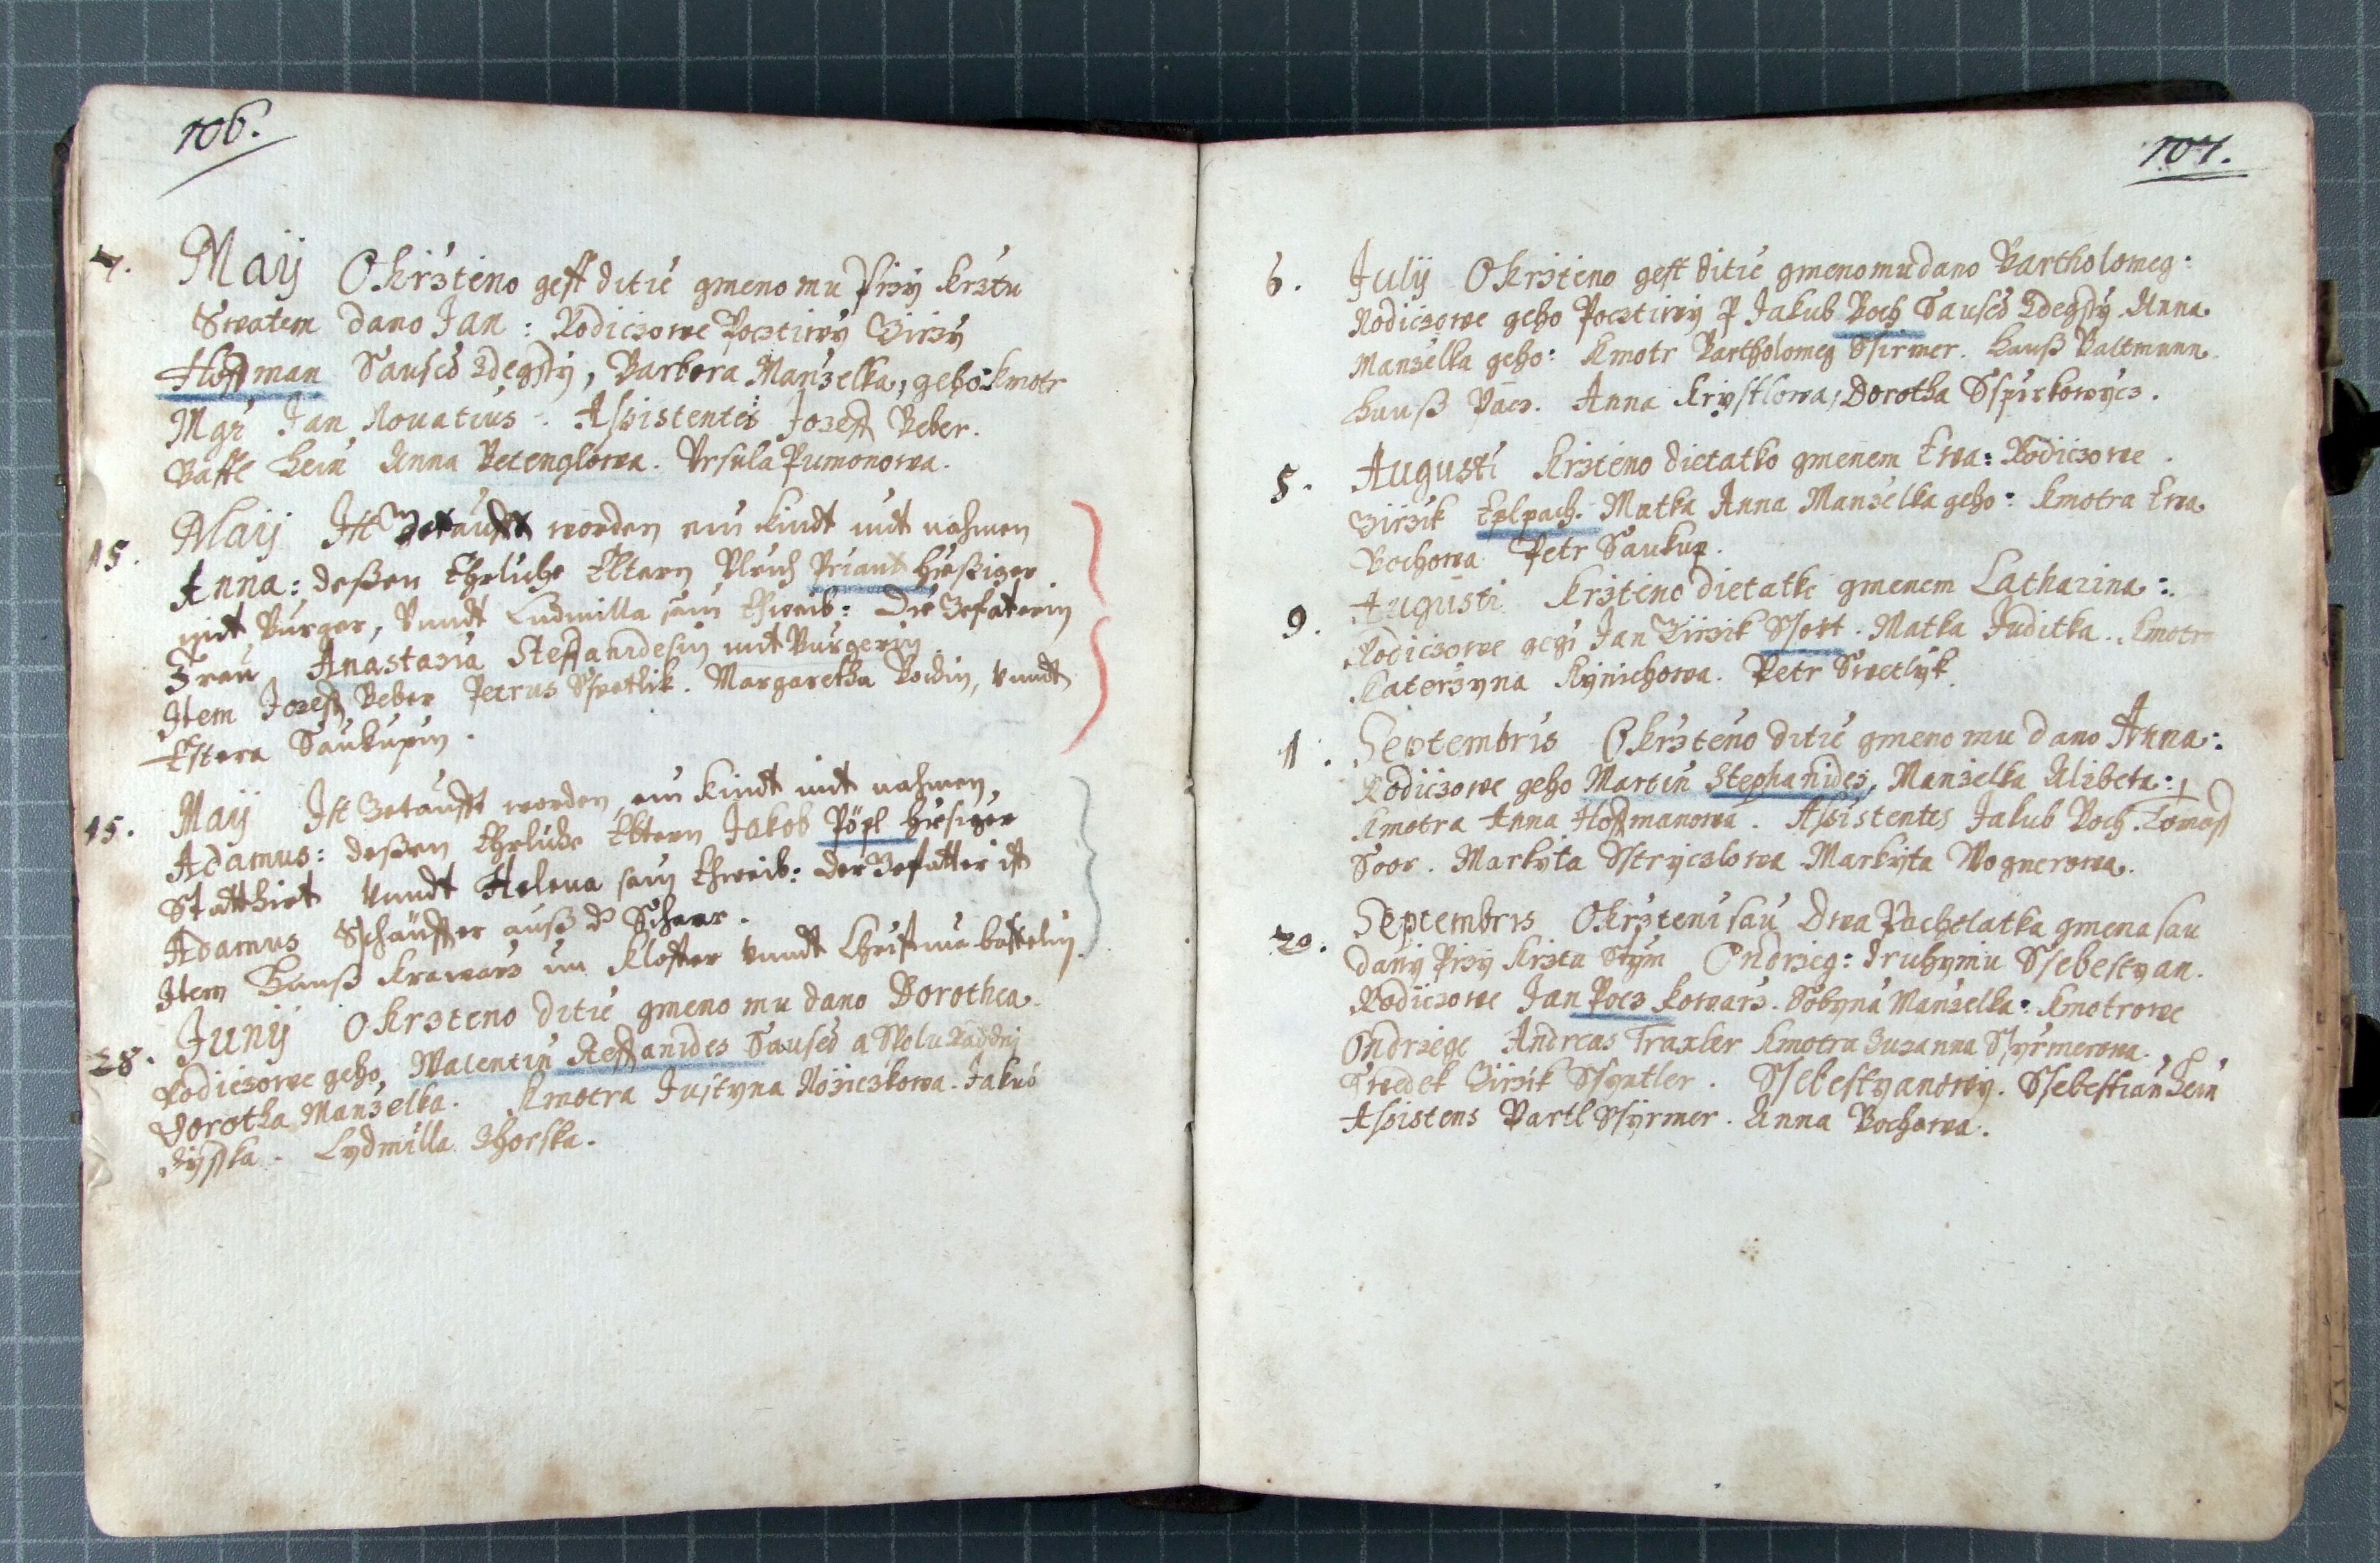 106.
7. Maij Okrzténo gest ditie gmeno mu Przy krztu
Swatem dano Jan: Rodiczowe Pocztiwy Girzy
Hoffman Saused zdegssy, Barbora Manzelka, geho: kmotr
Mgr Jan Nouatius. Assistentes Jozeff Beber.
Anna Betenglowa. Vrsula Pumonowa.
15. Maij Ist Getaufft worden ein kindt mit nahmen
Anna: deßen Ehrliche Eltern Vlrich Priant hießiger
mit Burger, Vnndt Ludmilla sein Eheweib: Die Gefaterin
Frau Anastazia Steffanidesin mit Burgerin
Item Jozeff Beber Petrus Swetlik. Margaretha Bochin, Vnndt
Estera Saukupin.
15. Maij Ist Getaufft worden, ein kindt mit nahmen,
Adamus: deßen Ehrliche Eltern Jakob Pöpl hiesiger
Statthirt Vnndt Helena sein Eheweib: der Gefatter ist
Adamus Schäuffter auß d Schaar.
Item Hanß krawarz im kloster Vnndt Christina bastelin.
28. Junij Okrzteno ditie gmeno mu dano Dorothea.
Rodiczowe geho Walentin Steffanides Saused a Spolu Raddnj
Dorotha Manzelka. Kmotra Justyna Noziczkowa. Jakub
Lydmilla Zhorska.
107.
6. Julij Okrzteno gest ditie gmeno mu dano Bartholomeg:
Rodiczowe geho Pocztiwy P Jakub Boch Saused zdegssy Anna
Manzelka geho: Kmotr Bartholomeg Ssirmer. Hanß Baltmann
Hanß Pacz. Anna Krystlowa, Dorotha Sspirkowycz.
5. Augusti Krzteno dietatko gmenem Ewa: Rodiczowe
Girzik Eplpach. Matka Anna Manzelka geho: Kmotra Ewa
Bochowa Petr Saukup.
9. Augusti Krzteno dietatko gmenem Catharina:
Rodiczowe gegi Jan Girzik Ssort. Matka Juditka. Kmotr
Katerzyna Kynichowa. Petr Swetlyk.
11. Septembris Okrzteno ditie gmeno mu dano Anna:
Rodiczowe geho Martin Stephanides, Manzelka Alzbeta:
Kmotra Anna Hoffmanowa. Assistentes Jakub Boch. Tomass
Soor. Markyta Sstryczlowa Markyta Wognerowa.
20. Septembris Okrzteni sau Dwa Pacholatka gmena sau
dany Przy Krztu Stym Ondrzeg: druhymu Ssebestyan.
Rodiczowe Jan Pocz kowarz. Sobyna Manzelka: Kmotrowe
Ondrzege Andreas Traxler Kmotra Zuzanna Ssyrmerowa.
Swedek Girzik Ssyntler. Ssebestyanowy. Ssebestian Hein
Assistens Bartl Ssyrmer. Anna Bochowa.